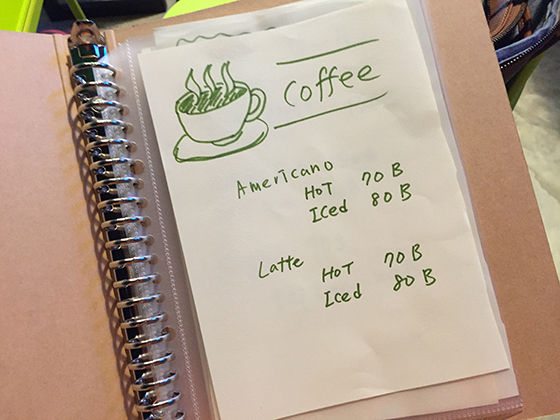 Coffee
Americano
HOT 70 B
Iced 80 B
Latte
HOT 70 B
Iced 80 B